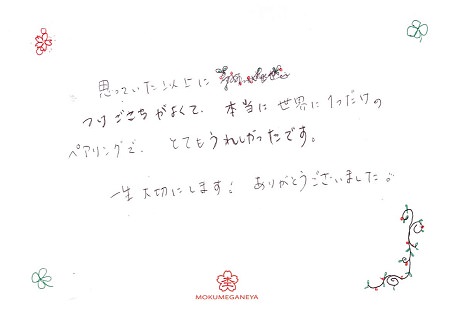 思っていた以上に
つけごこちがよくて、本当に世界に1つだけの
ペアリングで、とてもうれしかったです。
一生大切にします! ありがとうございました。
MOKUMEGANEYA